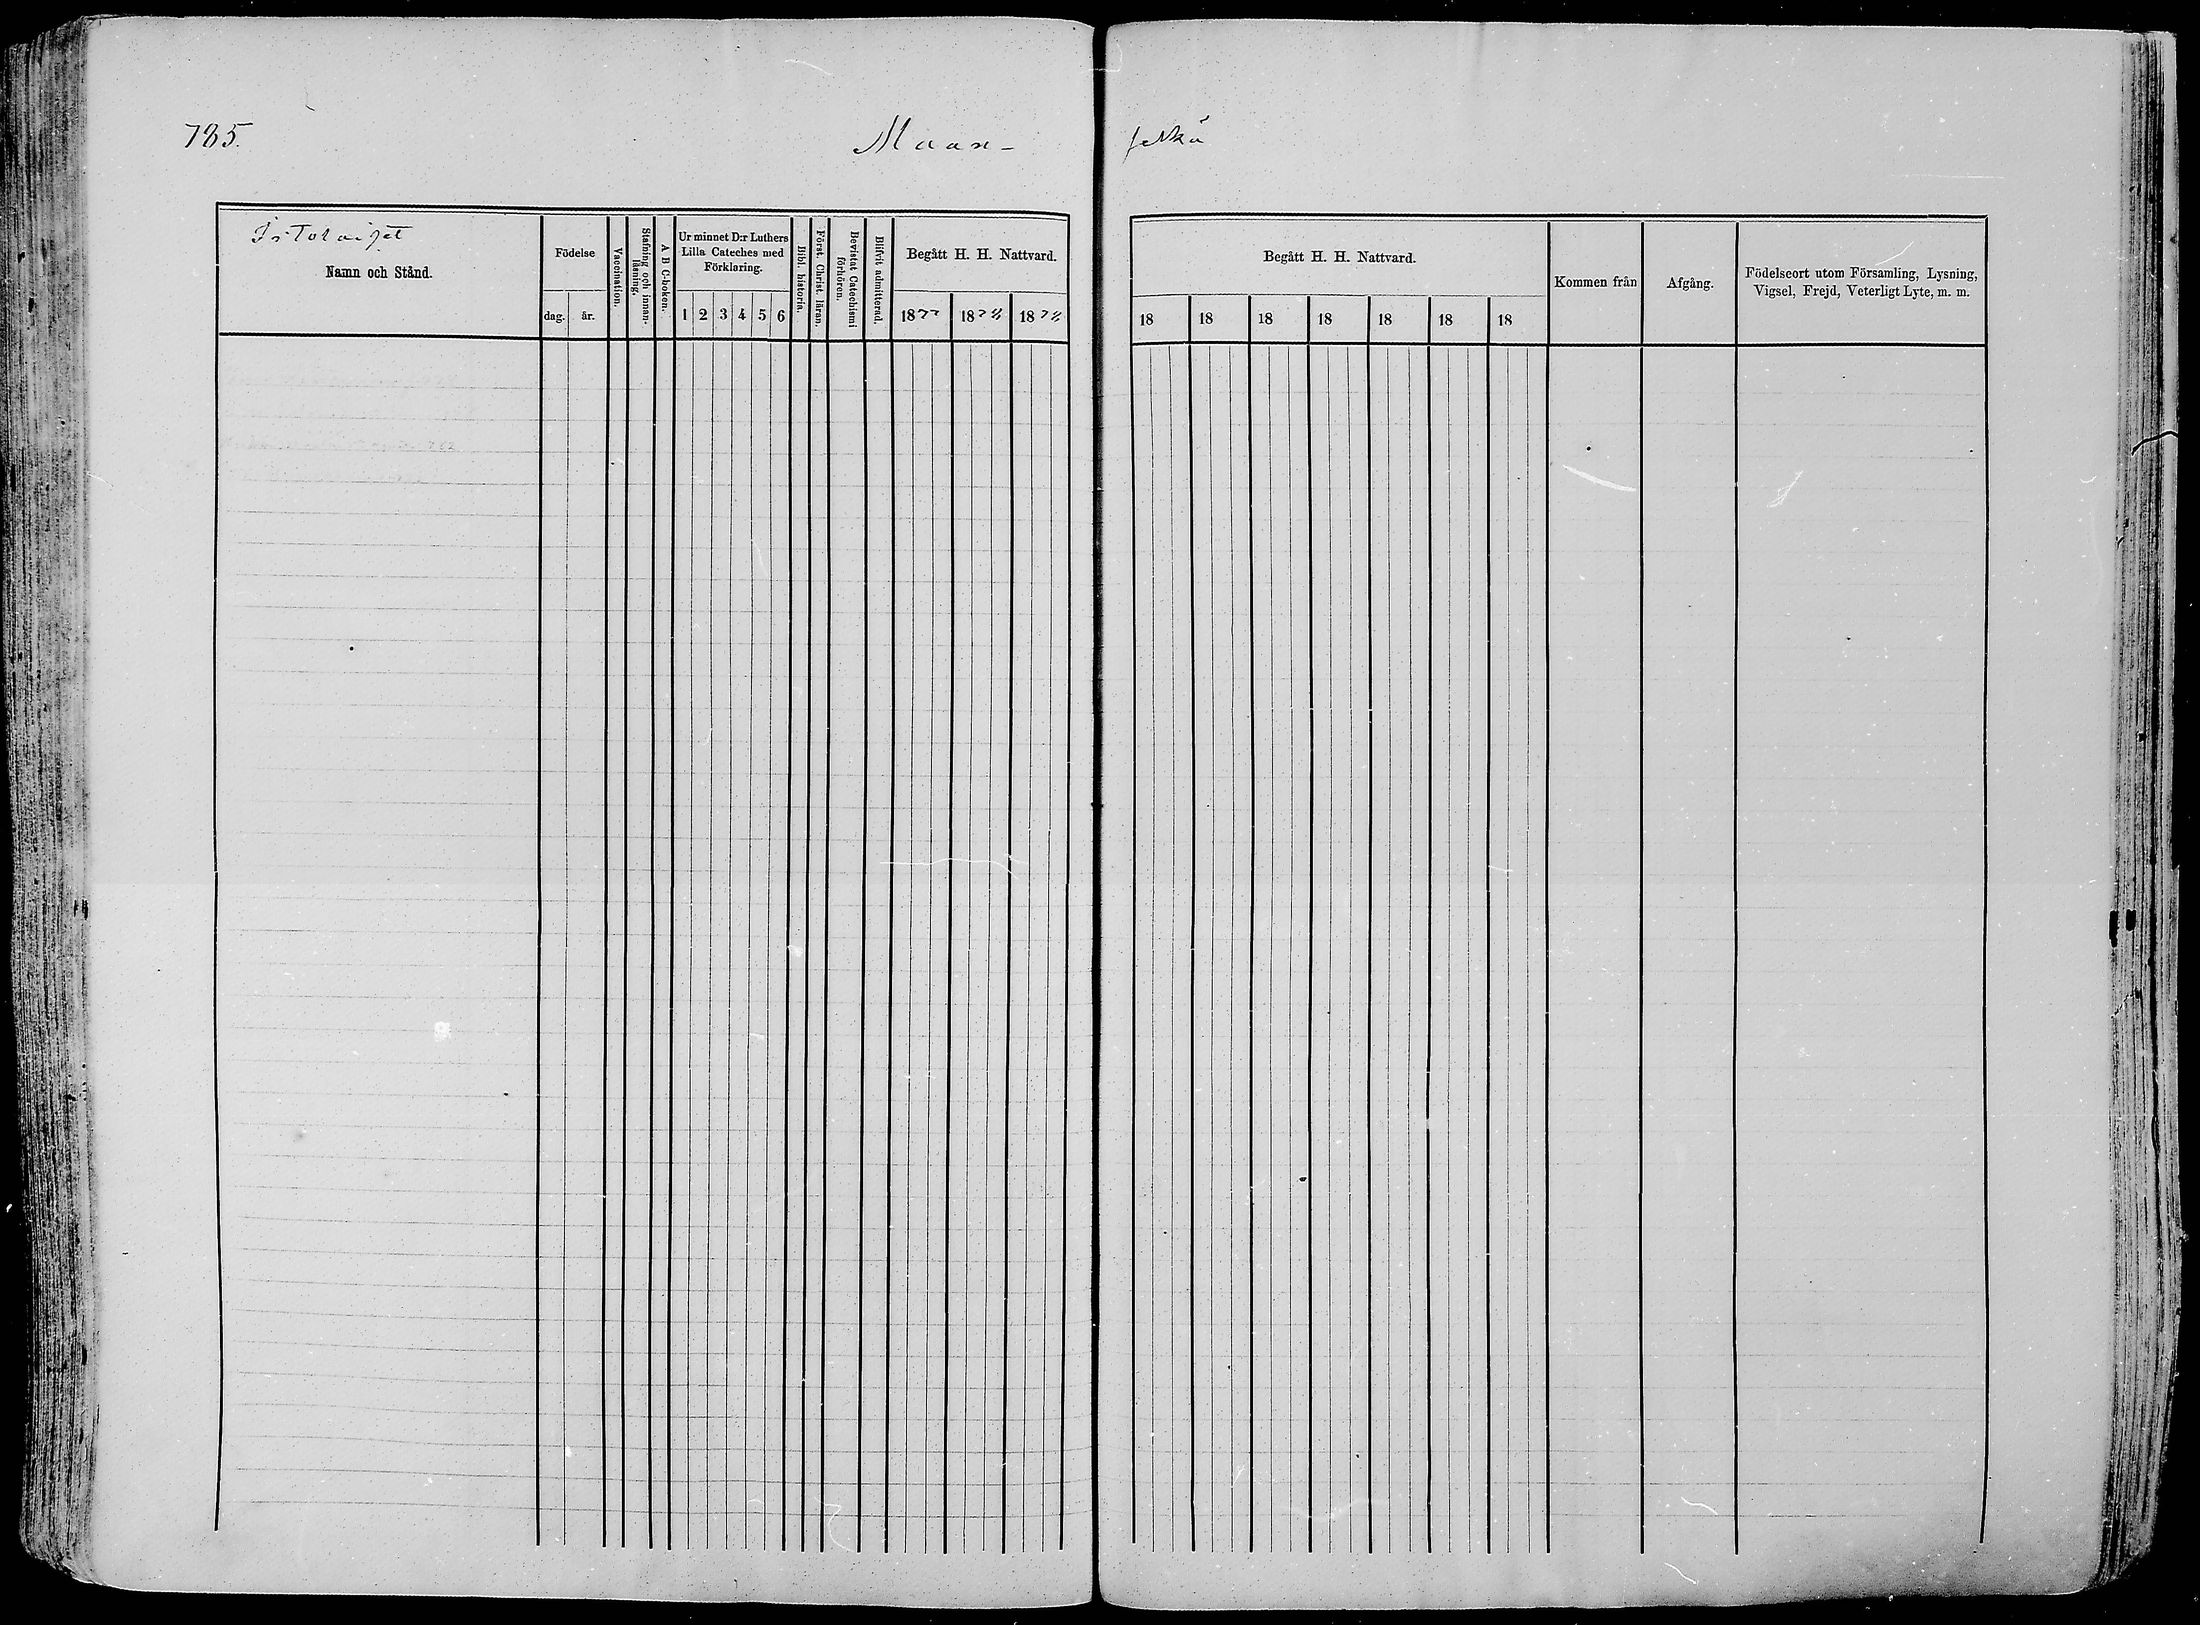 785.
Maan-
selkä
Namn och Stånd.
Födelse
dag.
år.
Vaccination.
Stafning och innan-
läsning.
A B C-boken.
Ur minnet D:r Luthers
Lilla Cateches med
Förklaring.
1 2 3 4 5 6
Bibl. historia.
Först. Christ. läran.
Bevistat Catechismi
förhören.
Blifvit admitterad.
Begått H. H. Nattvard.
1877 1878
Begått H. H. Nattvard.
18 18 18 18 18 18 18
Kommen från
Afgång.
Födelseort utom Församling, Lysning,
Vigsel, Frejd, Veterligt Lyte, m. m.